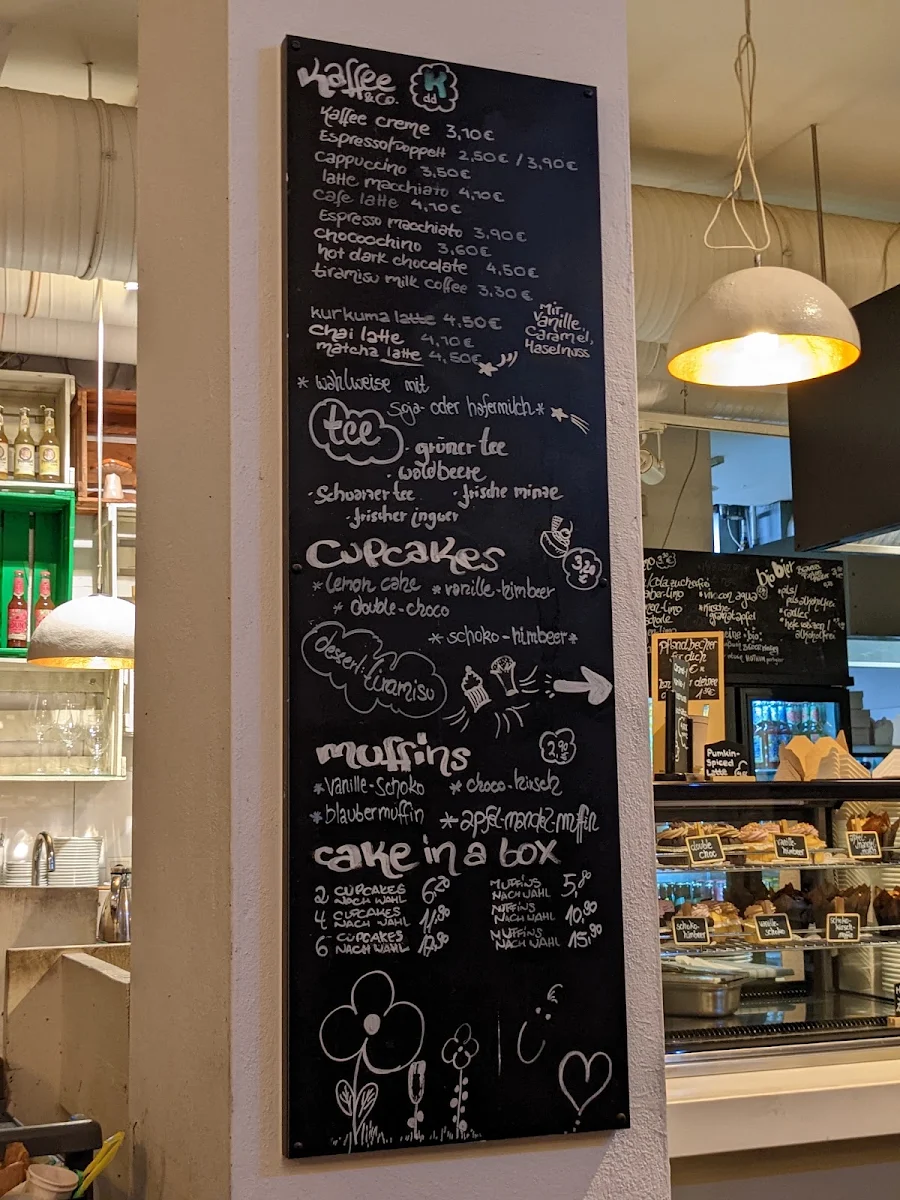 Kaffee
& Co.
K
dd
Kaffee creme 3,10€
Espresso/Doppelt 2,50€ / 3,90€
cappuccino 3,50€
latte macchiato 4,10€
cafe latte 4,10€
Espresso macchiato 3,90€
chocoochino 3,60€
hot dark chocolate 4,50€
tiramisu milk coffee 3,30€
kurkuma latte 4,50€
chai latte 4,10€
matcha latte 4,50€
Mit
Vanille,
Caramel,
Haselnuss
* wahlweise mit
soja- oder hafermilch*
tee
· grüner tee
· waldbeere
· Schwarzer tee · frische minze
· frischer ingwer
Cupcakes
3,20
€
* lemon cake * vanille-himbeer
* double-choco
* schoko-himbeer*
dessert:
tiramisu
muffins
2,90
* vanille-schoko * choco-kirsch
* blaubermuffin * apfel-mandel-muffin
cake in a box
2 CUPCAKES NACH WAHL 6,20
MUFFINS NACH WAHL 5,80
4 CUPCAKES NACH WAHL 11,90
MUFFINS NACH WAHL 10,90
6 CUPCAKES NACH WAHL
MUFFINS NACH WAHL 15,90
bio Bier
· granatapfel
alkoholfrei
pfandbecher
für dich
Pumkin-
Spiced
Latte
double
choc
vanille-
himbeer
apfel-
mandel
schoko-
himbeer
vanille-
schoko
schoko-
kirsch-